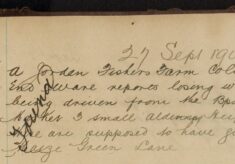 27 Sept 190
A Jordan Fishers Farm Col
End Ware reports losing w
being driven from the Bps
Mother 3 small alderney Hei
are supposed to have go
Green Lane
Found